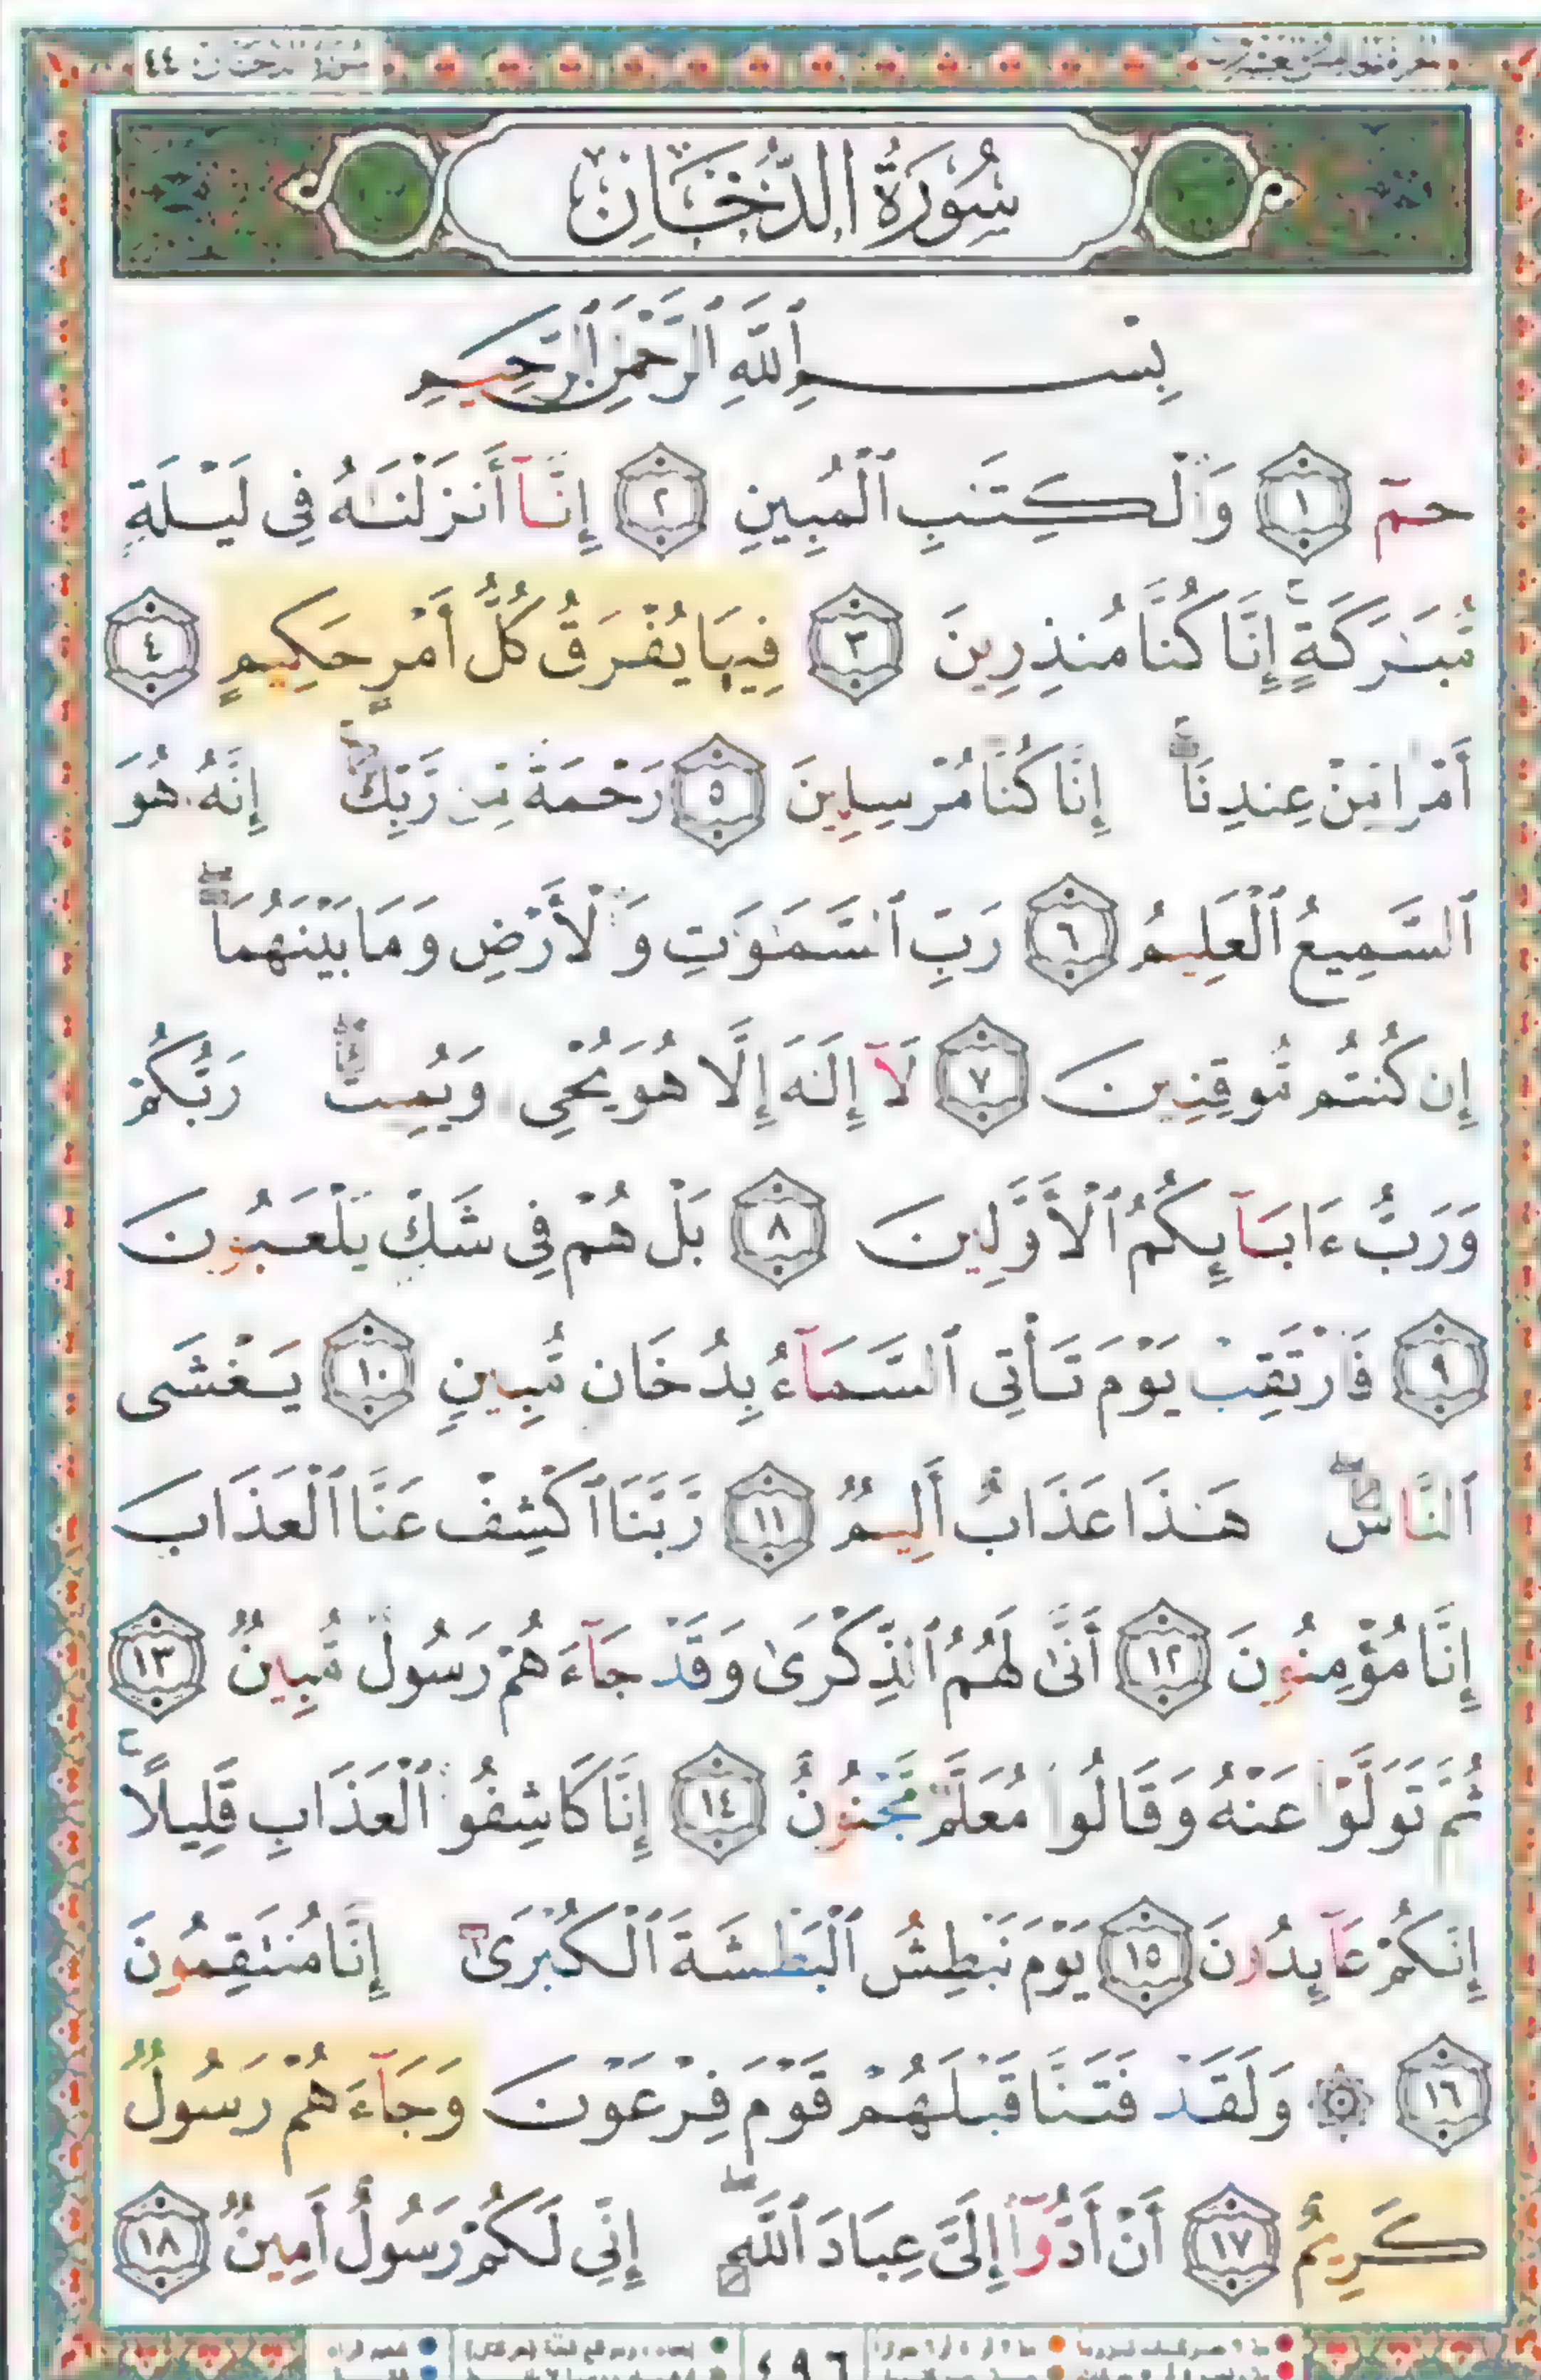 سورة الدخان ٤٤
سُورَةُ الدُّخَانِ
بِسْمِ ٱللَّهِ ٱلرَّحْمَٰنِ ٱلرَّحِيمِ
حمٓ ١ وَٱلْكِتَٰبِ ٱلْمُبِينِ ٢ إِنَّآ أَنزَلْنَٰهُ فِى لَيْلَةٍ
مُّبَٰرَكَةٍ ۚ إِنَّا كُنَّا مُنذِرِينَ ٣ فِيهَا يُفْرَقُ كُلُّ أَمْرٍ حَكِيمٍ ٤
أَمْرًا مِّنْ عِندِنَآ ۚ إِنَّا كُنَّا مُرْسِلِينَ ٥ رَحْمَةً مِّن رَّبِّكَ ۚ إِنَّهُۥ هُوَ
ٱلسَّمِيعُ ٱلْعَلِيمُ ٦ رَبِّ ٱلسَّمَٰوَٰتِ وَٱلْأَرْضِ وَمَا بَيْنَهُمَآ ۖ
إِن كُنتُم مُّوقِنِينَ ٧ لَآ إِلَٰهَ إِلَّا هُوَ يُحْىِۦ وَيُمِيتُ ۖ رَبُّكُمْ
وَرَبُّ ءَابَآئِكُمُ ٱلْأَوَّلِينَ ٨ بَلْ هُمْ فِى شَكٍّ يَلْعَبُونَ
٩ فَٱرْتَقِبْ يَوْمَ تَأْتِى ٱلسَّمَآءُ بِدُخَانٍ مُّبِينٍ ١٠ يَغْشَى
ٱلنَّاسَ ۖ هَٰذَا عَذَابٌ أَلِيمٌ ١١ رَّبَّنَا ٱكْشِفْ عَنَّا ٱلْعَذَابَ
إِنَّا مُؤْمِنُونَ ١٢ أَنَّىٰ لَهُمُ ٱلذِّكْرَىٰ وَقَدْ جَآءَهُمْ رَسُولٌ مُّبِينٌ ١٣
ثُمَّ تَوَلَّوْا۟ عَنْهُ وَقَالُوا۟ مُعَلَّمٌ مَّجْنُونٌ ١٤ إِنَّا كَاشِفُوا۟ ٱلْعَذَابِ قَلِيلًا ۚ
إِنَّكُمْ عَآئِدُونَ ١٥ يَوْمَ نَبْطِشُ ٱلْبَطْشَةَ ٱلْكُبْرَىٰٓ إِنَّا مُنتَقِمُونَ
١٦ ۞ وَلَقَدْ فَتَنَّا قَبْلَهُمْ قَوْمَ فِرْعَوْنَ وَجَآءَهُمْ رَسُولٌ
كَرِيمٌ ١٧ أَنْ أَدُّوٓا۟ إِلَىَّ عِبَادَ ٱللَّهِ ۖ إِنِّى لَكُمْ رَسُولٌ أَمِينٌ ١٨
٤٩٦